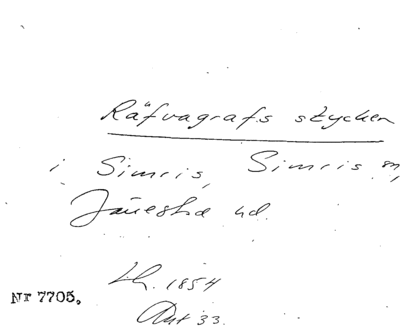 Räfvagrafs stycken
i Simris, Simris sn,
Järestad hd.
Lh. 1854
Akt 33.
Nr 7705.